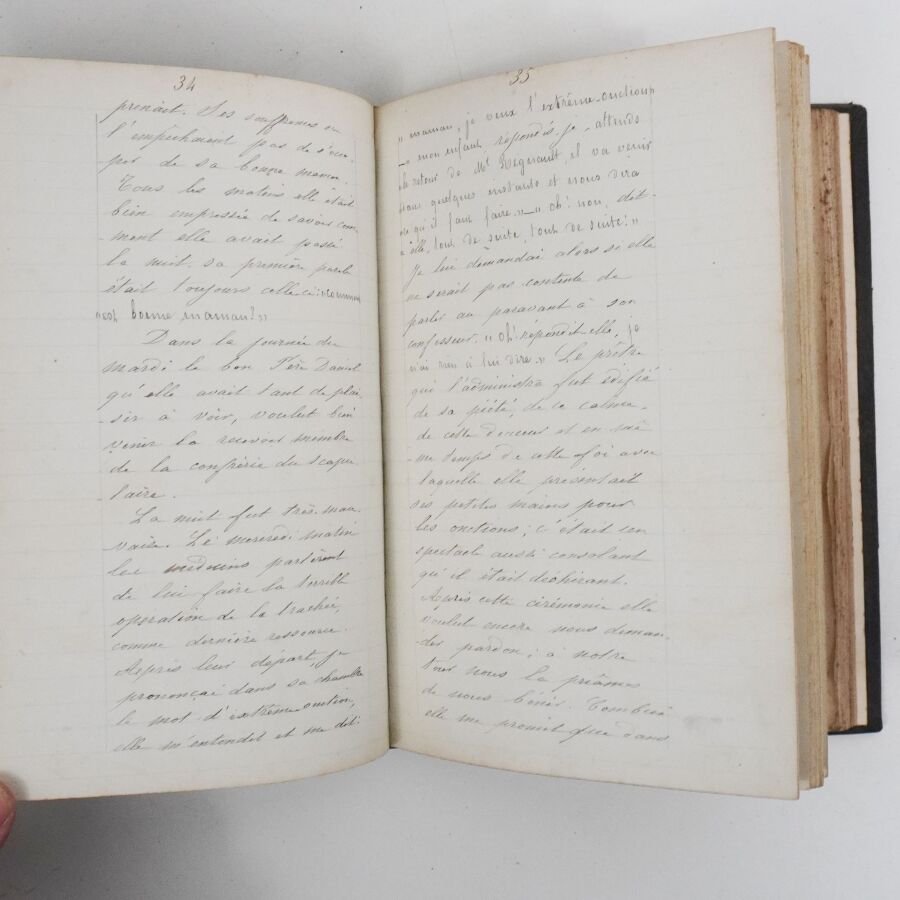 34
prenait. Ses souffrances ne
l'empêchaient pas de s'occu-
per de sa bonne maman.
Tous les matins elle était
bien empressée de savoir com
ment elle avait passé
la nuit. sa première parole
était toujours celle-ci:
"est bonne maman?"
Dans la journée du
mardi le bon Père Daniel
qu'elle avait tant de plai-
sir à voir, voulut bien
venir la recevoir membre
de la confrérie du Scapu
laire.
La nuit fut très mau
vaise. Le mercredi matin
les médecins parlèrent
de lui faire la terrible
opération de la trachée,
comme dernière ressource.
Après leur départ, je
prononçai dans sa chambre
le mot d'extrême onction,
elle m'entendit et me dit:
35
"maman, je veux l'extrême-onction
— mon enfant répondis-je, attends
le retour de Mr Regnault, il va venir
dans quelques instants et nous dira
ce qu'il faut faire." — "oh! non, dit-
elle, tout de suite, tout de suite!"
Je lui demandai alors si elle
ne serait pas contente de
parler au paravant à son
confesseur. "oh! répondit elle, je
n'ai rien à lui dire." Le prêtre
qui l'administra fut édifié
de sa piété, de ce calme,
de cette douceur et en mê
me temps de cette foi avec
laquelle elle présentait
ses petites mains pour
les onctions; c'était un
spectacle aussi consolant
qu'il était déchirant.
Après cette cérémonie elle
voulut encore nous deman
der pardon; à notre
tour nous la priâmes
de nous bénir. Combien
elle me promit que dans